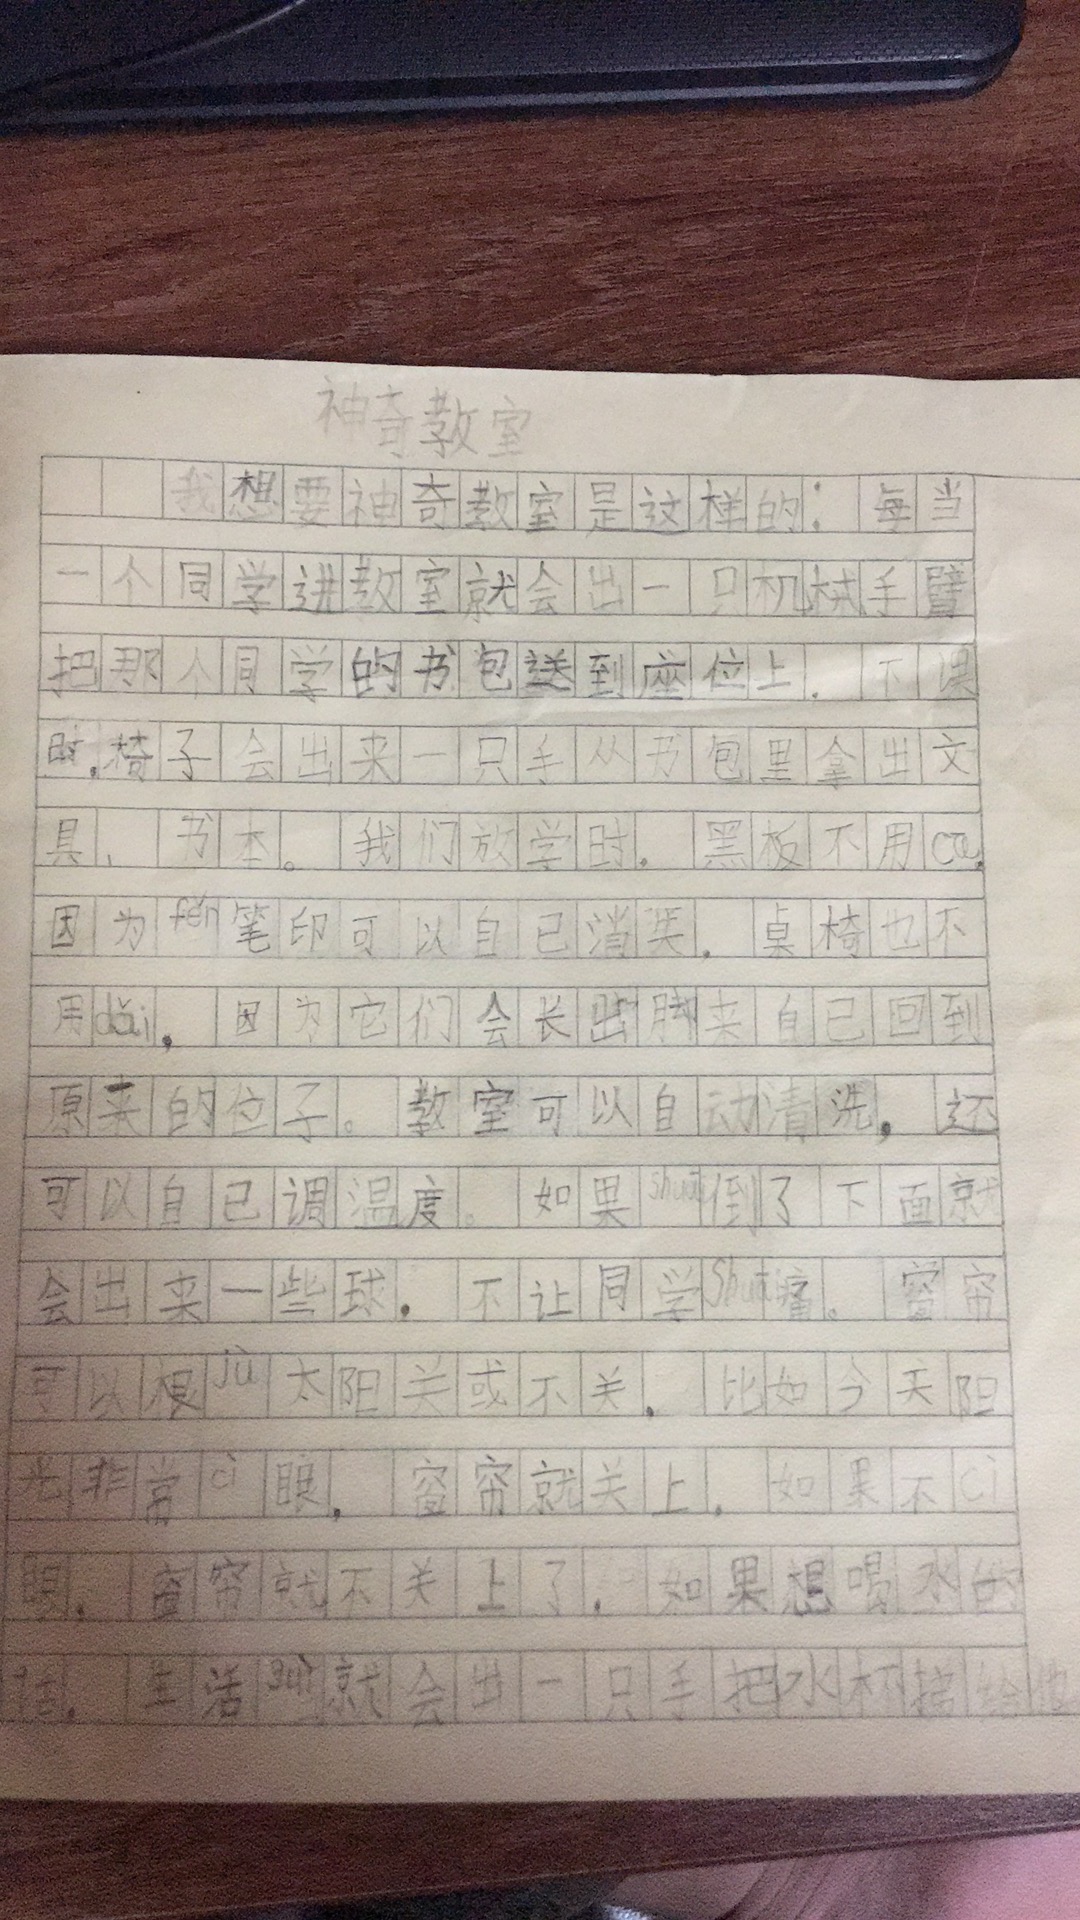 神奇教室
我想要神奇教室是这样的：每当
一个同学进教室就会出一只机械手臂
把那个同学的书包送到座位上.不误
时,椅子会出来一只手从书包里拿出文
具、书本。我们放学时.黑板不用ca.
因为fěn笔印可以自己消失.桌椅也不
用dǎi,因为它们会长出脚来自己回到
原来的位子。教室可以自动清洗,还
可以自己调温度。如果shuāi倒了下面就
会出来一些球.不让同学Shuāi痛。窗帘
可以根jù太阳关或不关.比如今天阳
光非常cì眼,窗帘就关上.如果不cì
眼.窗帘就不关上了.如果想喝水的
话.生活就会出一只手把水杯递给他